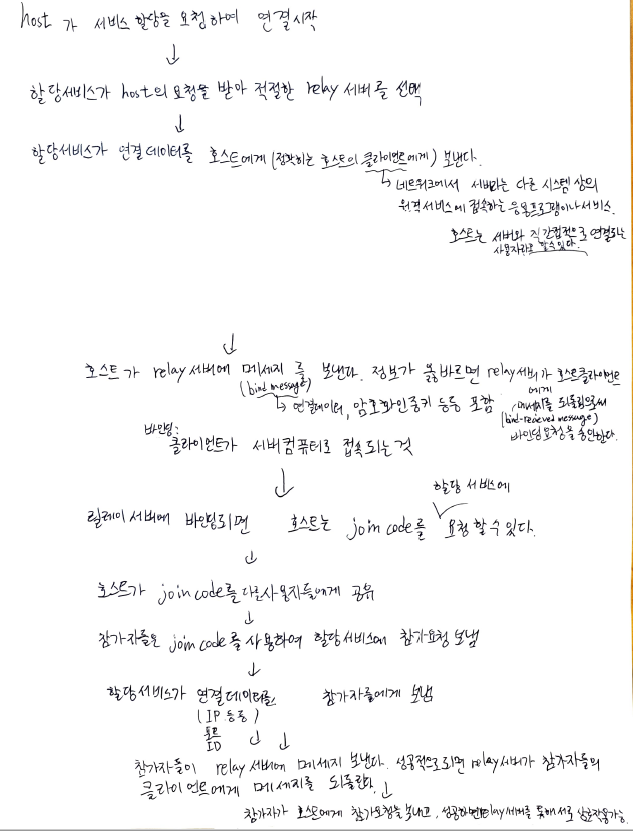 host 가 서비스 할당을 요청하여 연결시작
↓
할당서비스가 host의 요청을 받아 적절한 relay 서버를 선택
↓
할당서비스가 연결데이터를 호스트에게 (정확히는 호스트의 클라이언트에게) 보낸다.
↳ 네트워크에서 서버라는 다른 시스템 상의
원격서비스에 접속하는 응용프로그램이나 서비스.
호스트는 서버와 직간접적으로 연결되는
사용자라고 할 수 있다.
↓
호스트가 relay 서버에 메세지를 보낸다. 정보가 올바르면 relay 서버가 호스트클라이언트
에게
(bind message)
메세지를 되돌림으로써
↳ 연결데이터, 암호화인증키 등등 포함
(bind-recieved message)
바인딩요청을 승인한다.
바인딩:
클라이언트가 서버컴퓨터로 접속되는것
↓
할당 서비스에
릴레이 서버에 바인딩되면 호스트는 join code를 요청 할 수 있다.
↓
호스트가 join code를 다른사용자들에게 공유
↓
참가자들은 join code를 사용하여 할당서비스에 참가요청 보냄
↓
할당서비스가 연결데이터를 참가자들에게 보냄
(IP 등등)
포트
ID
↓ ↓
참가자들이 relay 서버에 메세지 보낸다. 성공적으로되면 relay 서버가 참가자들의
클라이언트에게 메세지를 되돌린다.
↓
참가자가 호스트에게 참가요청을 보내고, 성공하면 relay 서버를 통해 서로 상호작용가능.